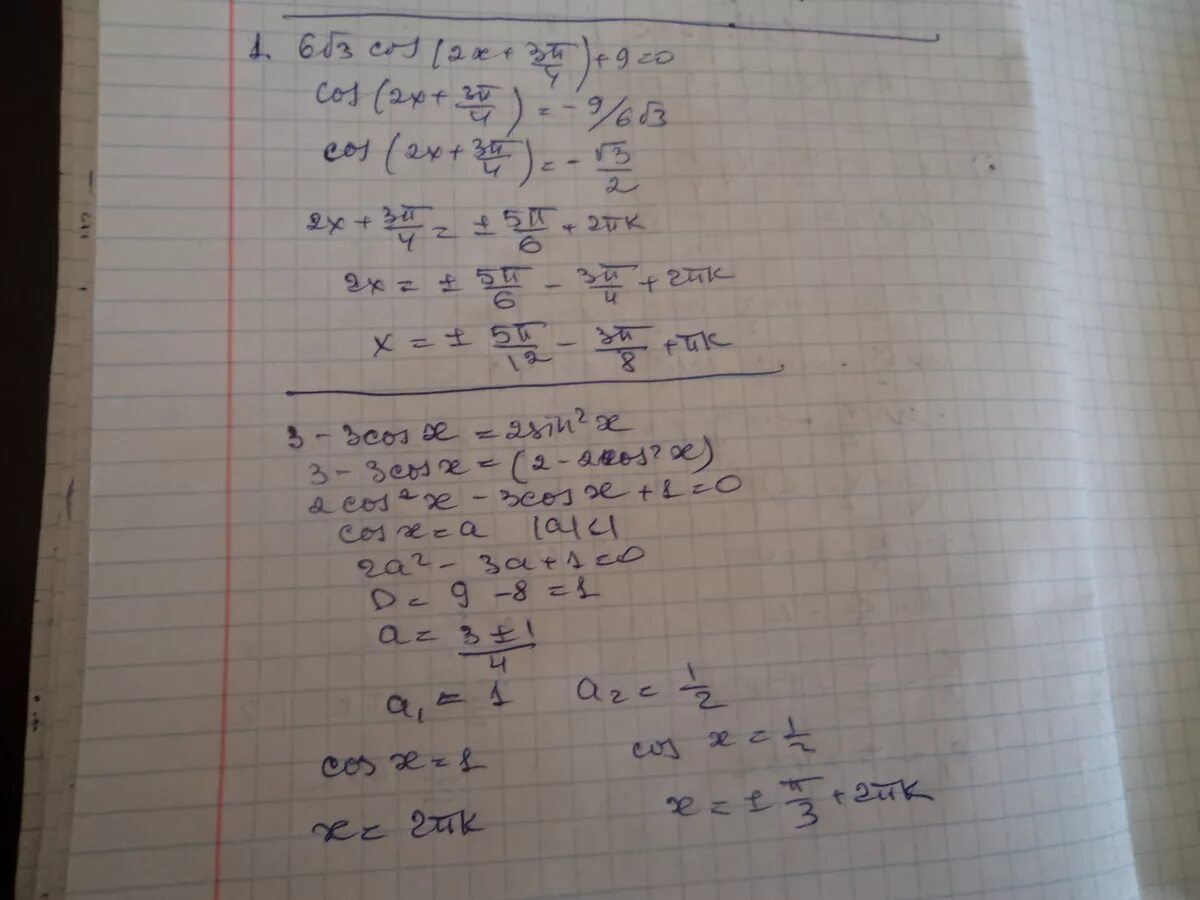 1. 6√3 cos(2x + 3π/4) + 9 = 0
cos(2x + 3π/4) = - 9/6√3
cos(2x + 3π/4) = - √3/2
2x + 3π/4 = ± 5π/6 + 2πk
2x = ± 5π/6 - 3π/4 + 2πk
x = ± 5π/12 - 3π/8 + πk
3 - 3cos x = 2sin²x
3 - 3cos x = (2 - 2cos²x)
2cos²x - 3cos x + 1 = 0
cos x = a |a|<1
2a² - 3a + 1 = 0
D = 9 - 8 = 1
a = 3 ± 1/4
a₁ = 1 a₂ = 1/2
cos x = 1 cos x = 1/2
x = 2πk x = ± π/3 + 2πk